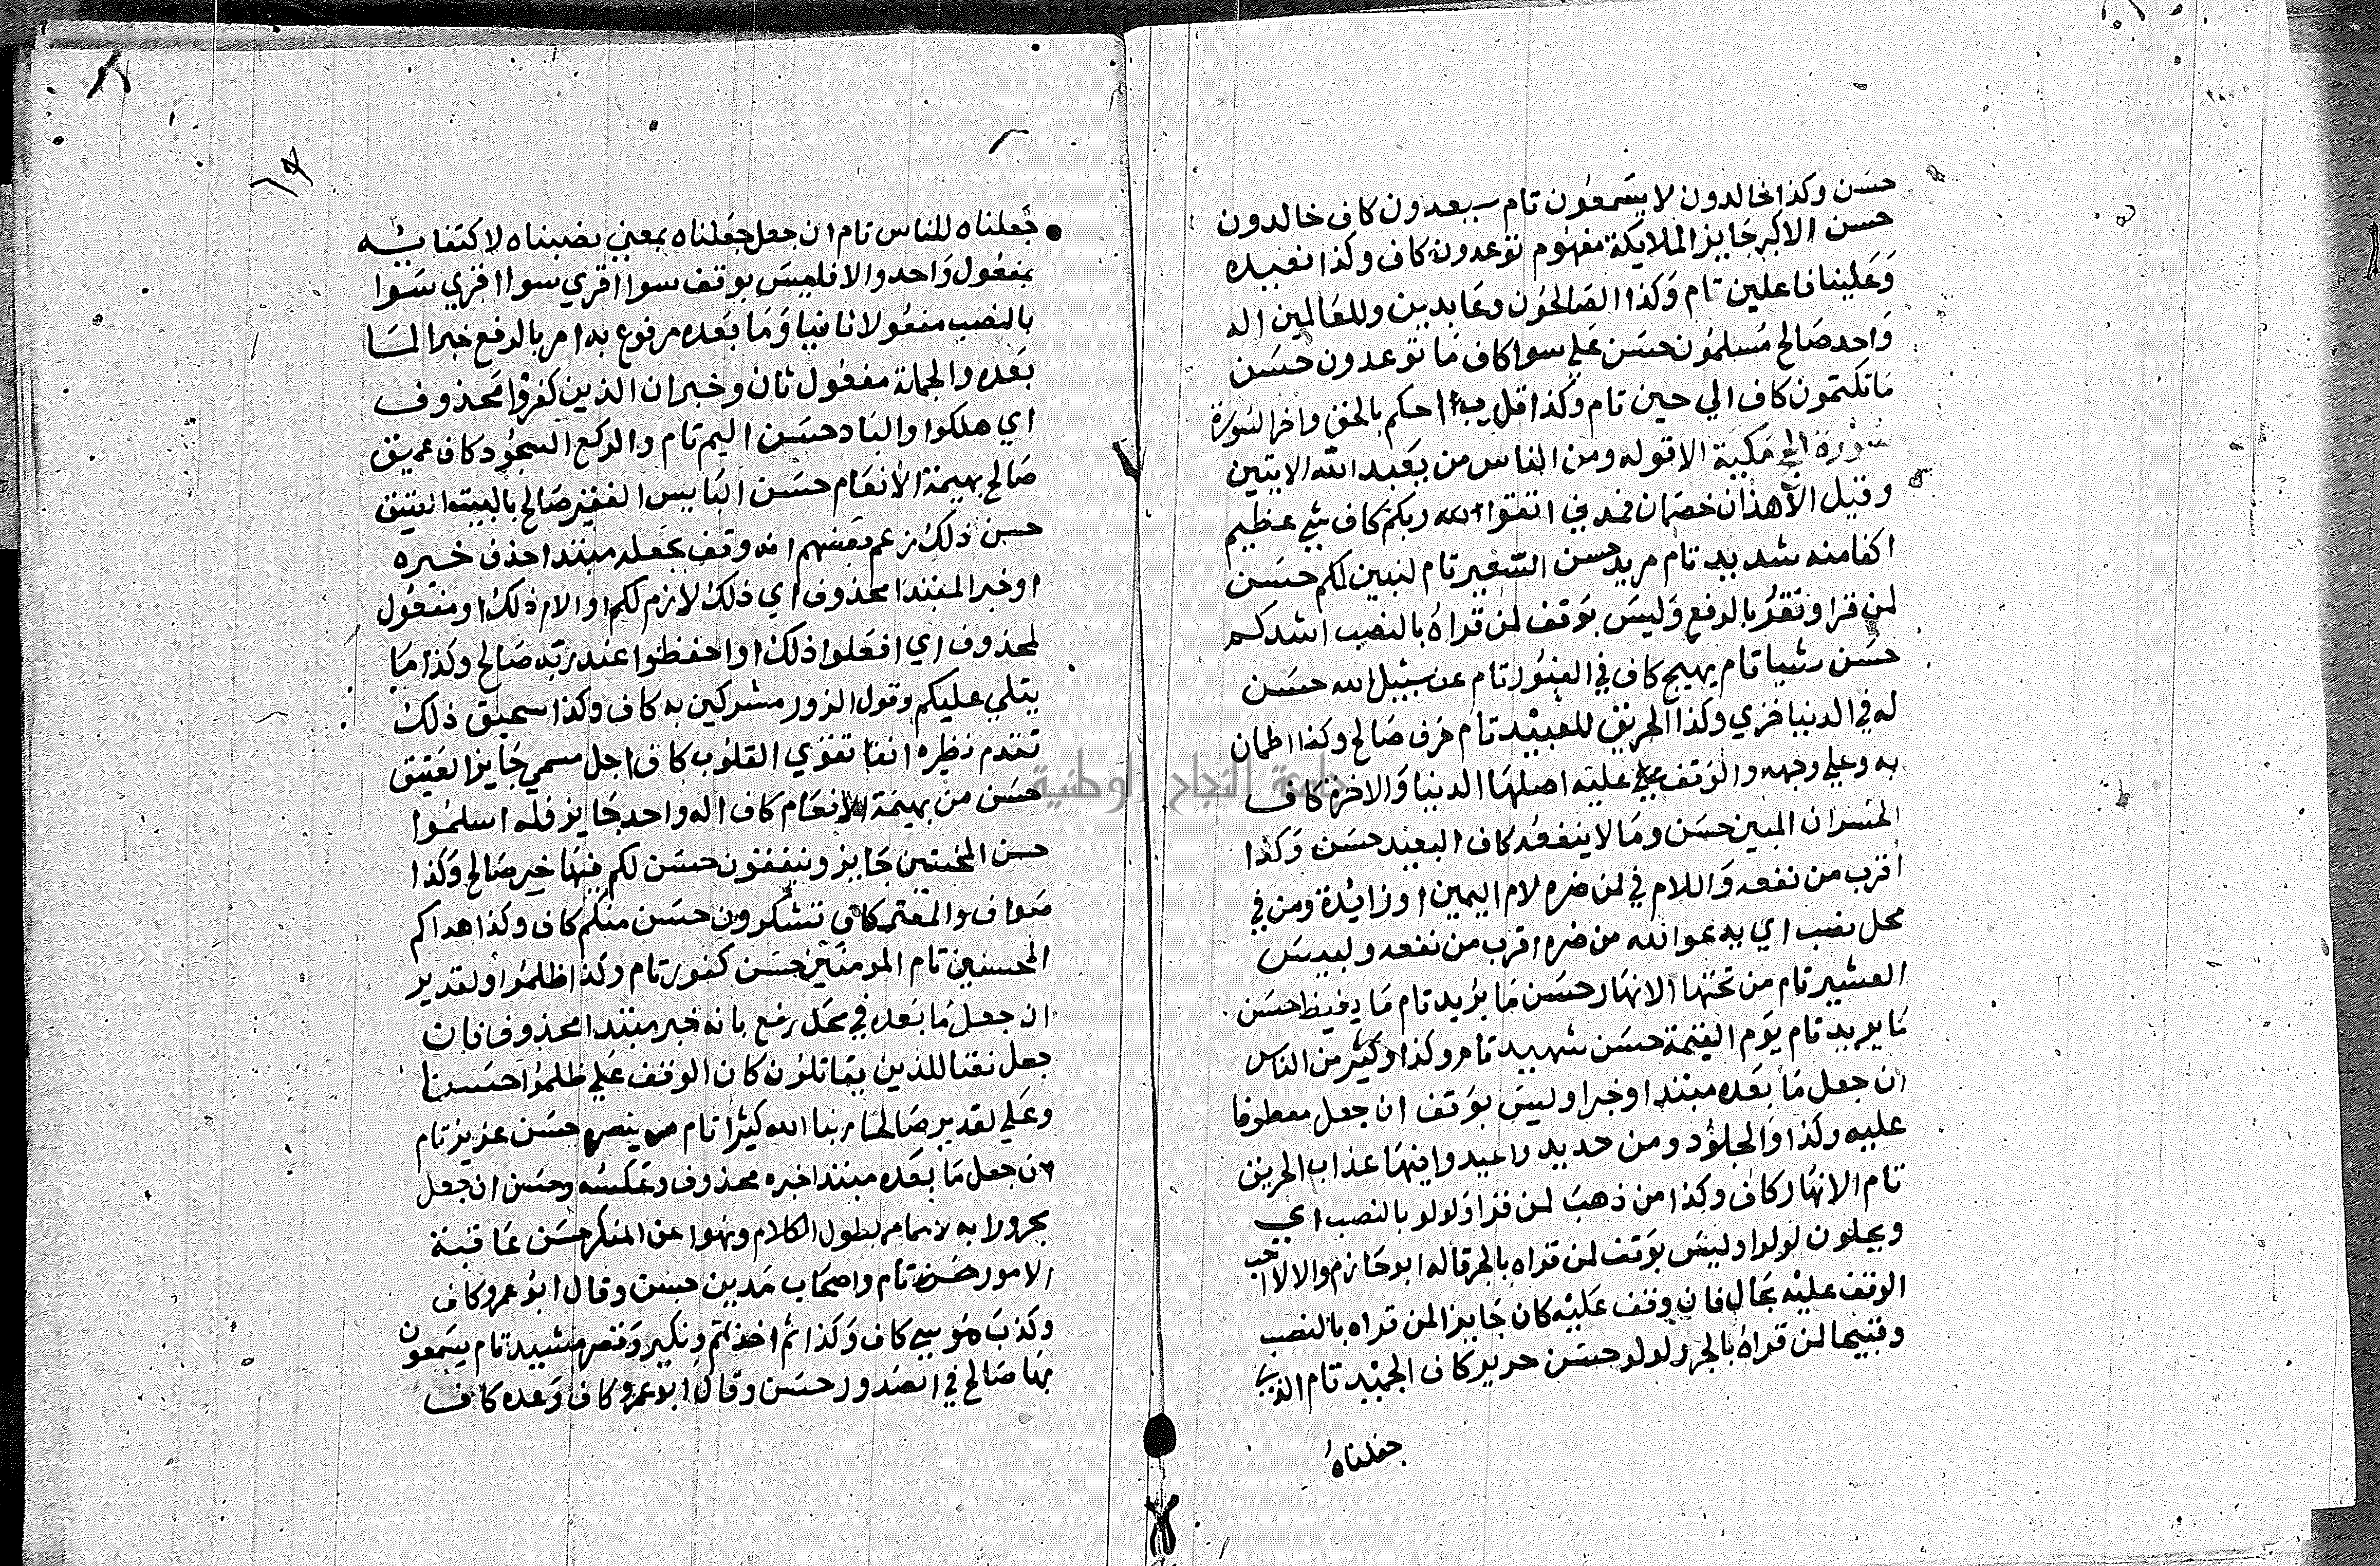 حسن وكذا خالدون لا يسمعون تام مبعدون كاف خالدون
حسن الاكبر جايز الملايكة مفهوم توعدون كاف وكذا نعيده
وعلينا فاعلين تام وكذا الصالحون وعابدين وللعالمين اله
واحد صالح مسلمون حسن علي سوا كاف ما توعدون حسن
ما تكتمون كاف الي حين تام وكذا قل رب احكم بالحق واخر السورة
سورة الحج مكية الا قوله ومن الناس من يعبد الله الايتين
وقيل الا هذان خصمان فمدني اتقوا ربكم كاف شي عظيم
اكفا منه شديد تام مريد حسن السعير تام لنبين لكم حسن
لمن قرا ونقر بالرفع وليس بوقف لمن قراه بالنصب اشدكم
حسن شيا تام بهيج كاف في القبور تام عن سبيل الله حسن
له في الدنيا خزي وكذا الحريق للعبيد تام حرف صالح وكذا اطمان
به وعلي وجهه والوقف علي عليه اصلها الدنيا والاخرة كاف
الخسران المبين حسن وما لا ينفعه كاف البعيد حسن وكذا
اقرب من نفعه واللام في لمن ضره لام اليمين او زايدة ومن في
محل نصب اي يدعوا الله من ضره اقرب من نفعه ولبيس
العشير تام من تحتها الانهار حسن ما يريد تام ما يغيظ حسن
ما يريد تام يوم القيمة حسن شهيد تام وكذا وكثير من الناس
ان جعل ما بعده مبتدا وخبرا وليس بوقف ان جعل معطوفا
عليه وكذا والجلود ومن حديد واعيدوا فيها عذاب الحريق
تام الانهار كاف وكذا من ذهب لمن قرا ولولو بالنصب اي
ويحلون لولوا وليس بوقف لمن قراه بالجر قاله ابو حازم والا لا احب
الوقف عليه بحال فان وقف عليه كان جايزا لمن قراه بالنصب
وقبيحا لمن قراه بالجر ولولو حسن حرير كاف الحميد تام الذي
جعلناه
جعلناه للناس تام ان جعل جعلناه بمعني نصبناه لاكتفايه
بمفعول واحد والا فليس بوقف سوا اقري سوا اقري سوا
بالنصب مفعولا ثانيا وما بعده مرفوع به ام بالرفع خبرا لما
بعده والجملة مفعول ثان وخبر ان الذين كفروا محذوف
اي هلكوا والباد حسن اليم تام والركع السجود كاف عميق
صالح بهيمة الانعام حسن البايس الفقير صالح بالبيت العتيق
حسن ذلك زعم بعضهم انه وقف بجعله مبتدا حذف خبره
او خبر المبتدا محذوف اي ذلك لازم لكم او الامر ذلك او مفعول
لمحذوف اي افعلوا ذلك او احفظوا عند ربه صالح وكذا ما
يتلي عليكم وقول الزور مشركين به كاف وكذا سحيق ذلك
تقدم نظيره انفا تقوي القلوب كاف اجل مسمي جايز العتيق
حسن من بهيمة الانعام كاف اله واحد جايز فله اسلموا
حسن المخبتين جايز وينفقون حسن لكم فيها خير صالح وكذا
صواف والمعتر كاف تشكرون حسن منكم كاف وكذا هداكم
المحسنين تام المومنين حسن كفور تام وكذا ظلموا ولقدير
ان جعل ما بعده في محل رفع بانه خبر مبتدا محذوف فان
جعل نعتا للذين يقاتلون كان الوقف علي ظلموا حسنا
وعلي لقدير صالحا ربنا الله كثيرا تام من ينصره حسن عزيز تام
ان جعل ما بعده مبتدا خبره محذوف وعكسه وحسن ان جعل
مجرورا به لا تمام لطول الكلام ونهوا عن المنكر حسن عاقبة
الامور حسن تام واصحاب مدين حسن وقال ابو عمرو كاف
وكذب موسي كاف وكذا ثم اخذتهم ونكير وقصر مشيد تام يسمعون
بها صالح في الصدور حسن وقال ابو عمرو كاف وعده كاف
جامعة النجاح الوطنية